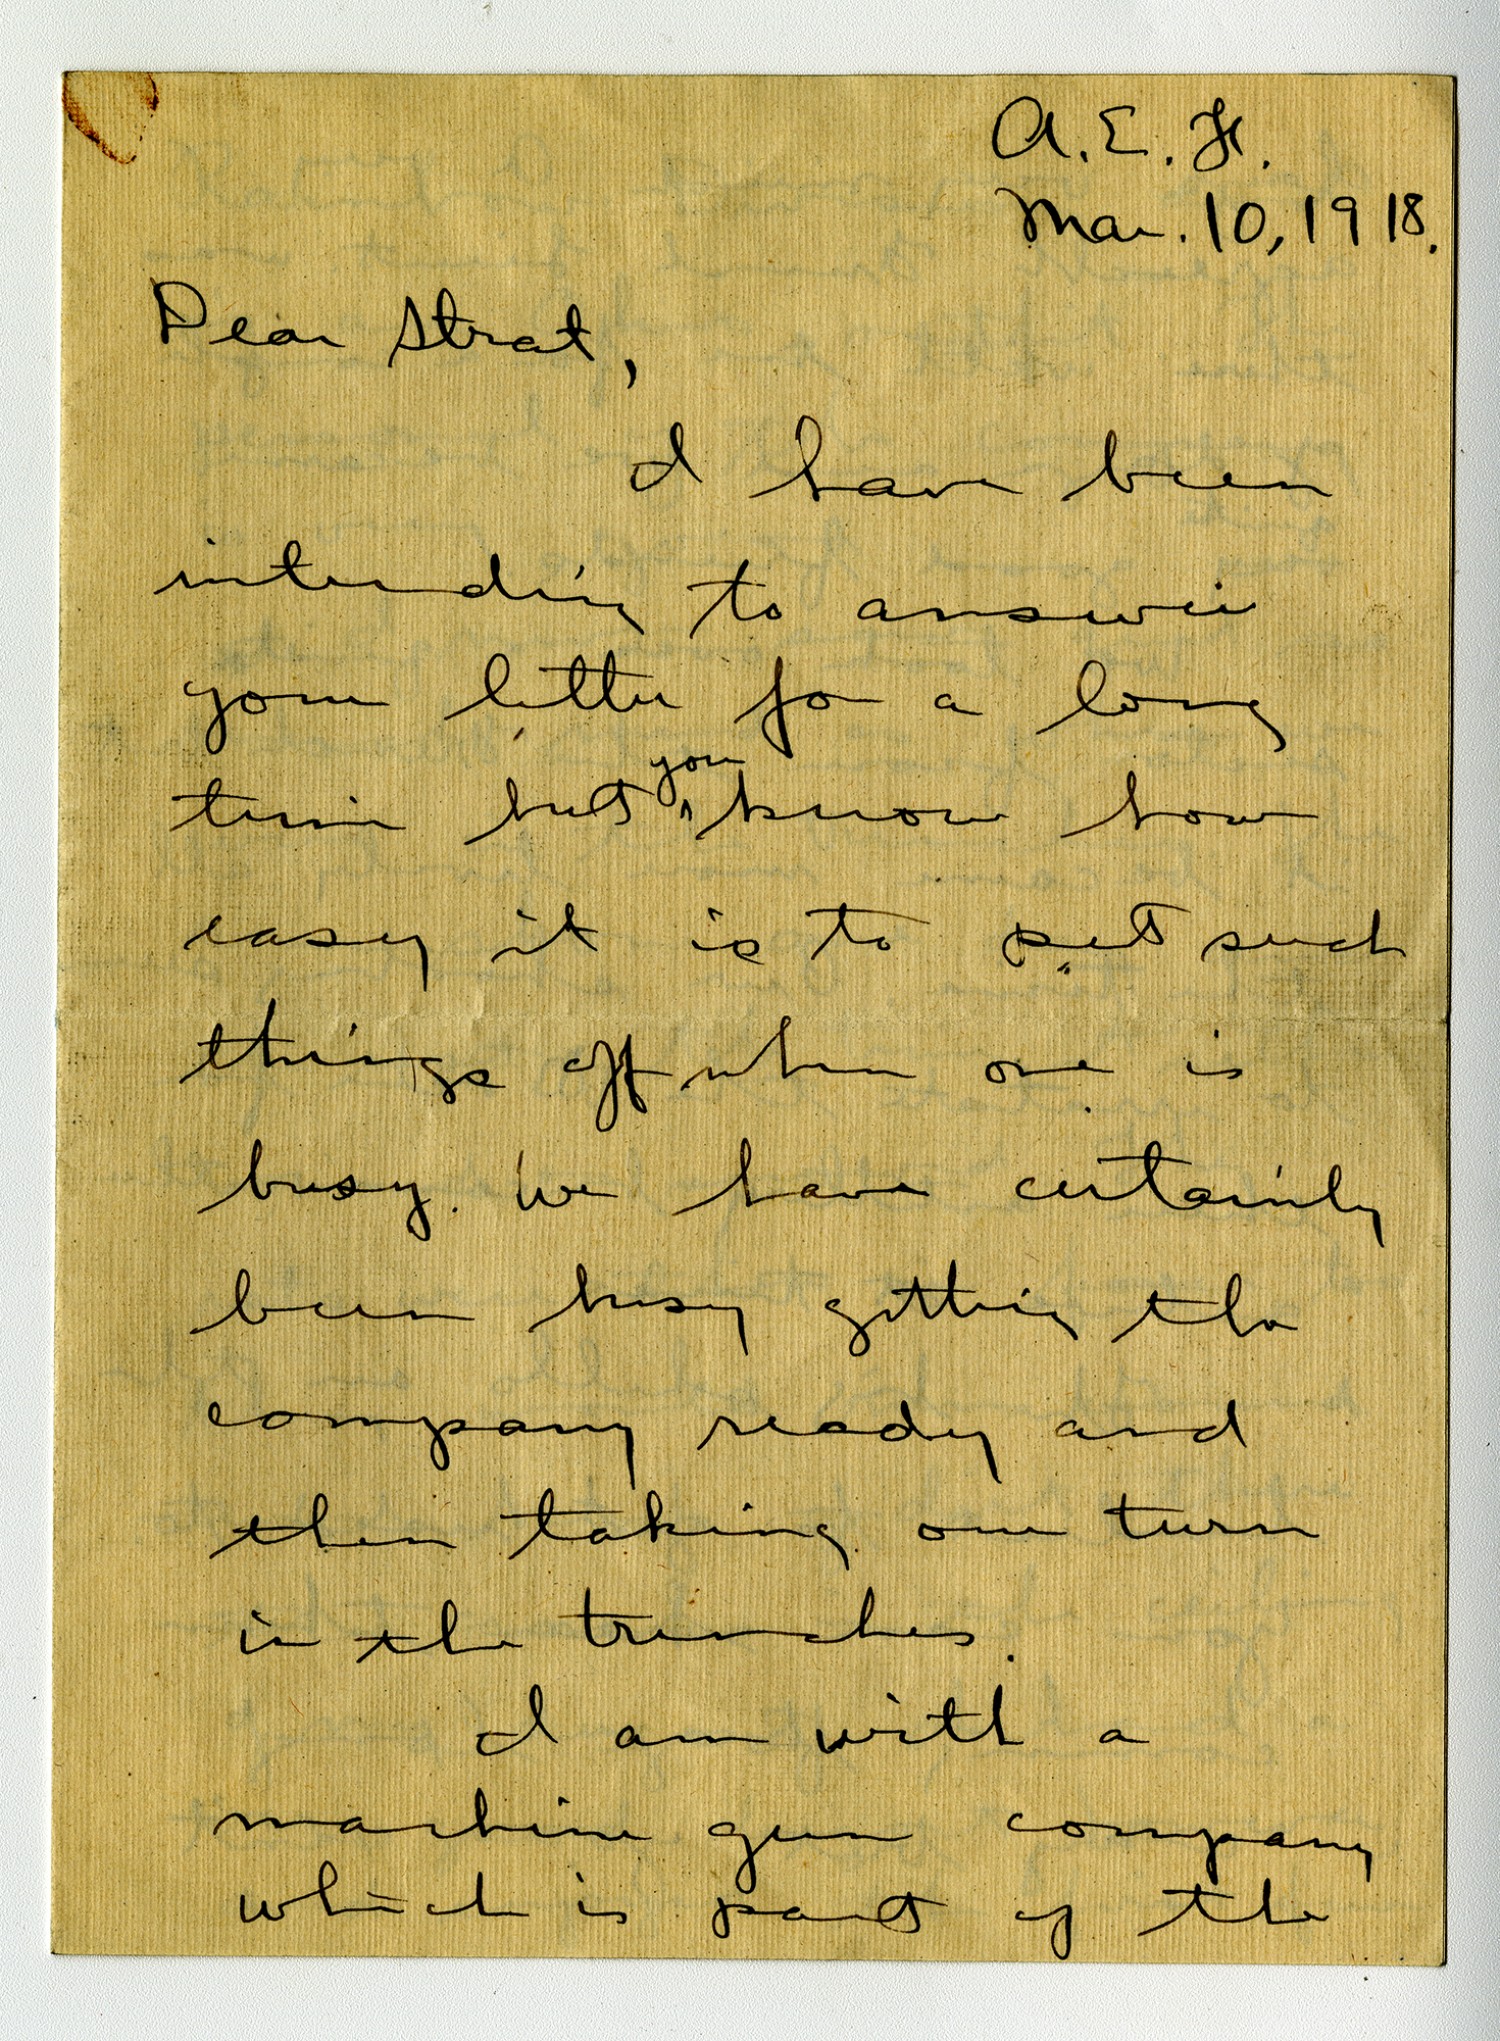 A. E. F.
Mar. 10, 1918.
Dear Strat,
I have been
intending to answer
your letter for a long
time but you know how
easy it is to put such
things off when one is
busy. We have certainly
been busy getting the
company ready and
then taking our turn
in the trenches.
I am with a
machine gun company
which is part of the